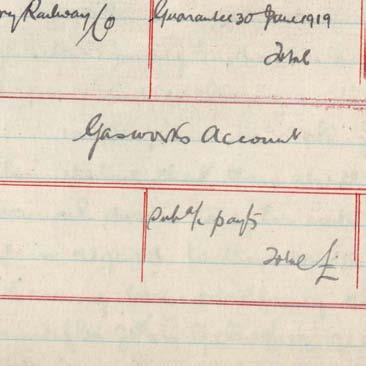 ry Railway Co Guarantee 30 June 1919
Total
Gasworks Account
Sub a/c payts
Total £